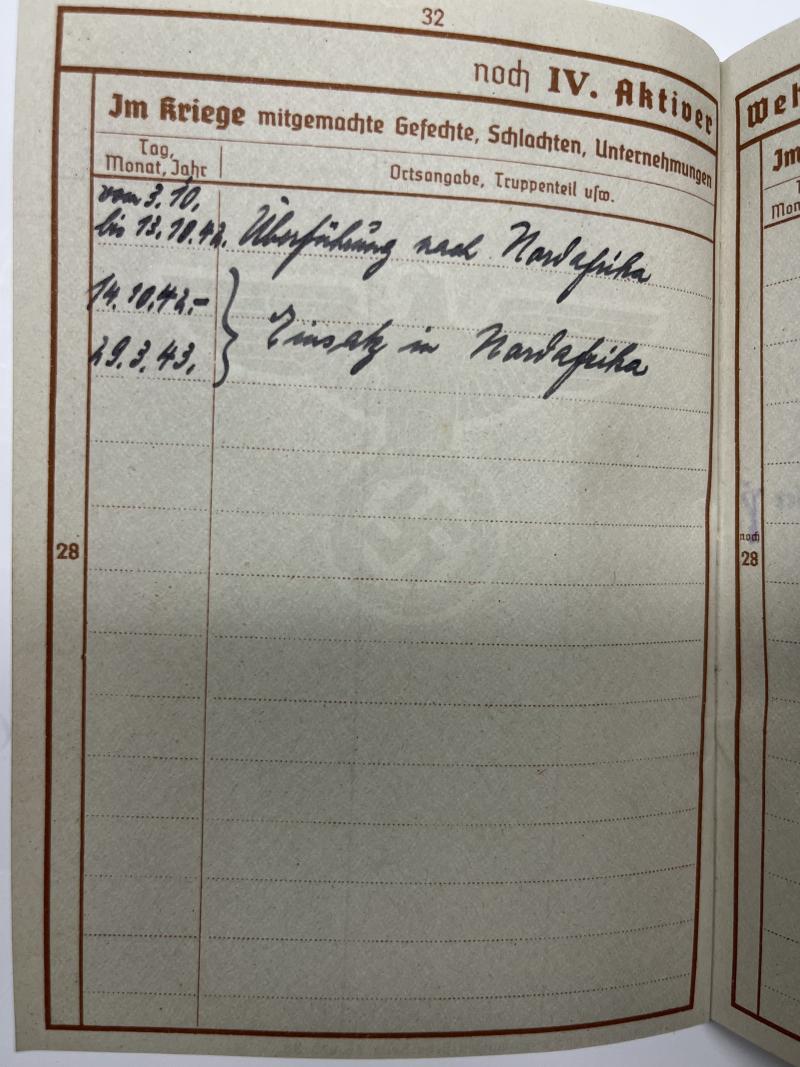 32
noch IV. Aktiver
Im Kriege mitgemachte Gefechte, Schlachten, Unternehmungen
Tag, Monat, Jahr
Ortsangabe, Truppenteil usw.
vom 3.10.
bis 13.10.42. Überführung nach Nordafrika
14.10.42.-
29.3.43. Einsatz in Nordafrika
28
Weh
Im
noch
28